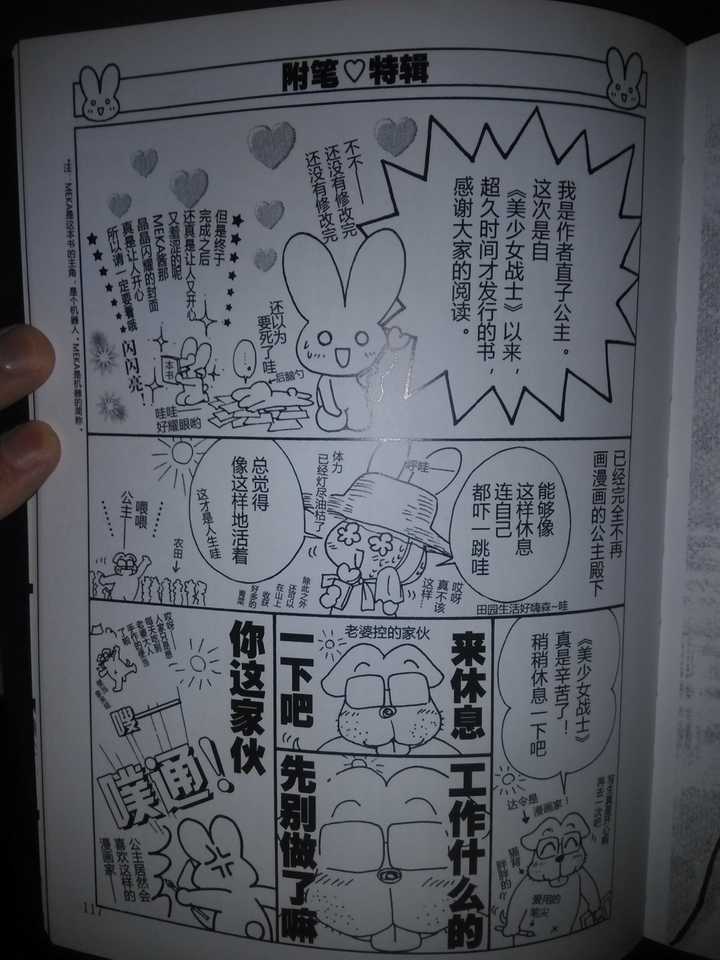 附笔♡特辑
我是作者直子公主。
这次是自
《美少女战士》以来，
超久时间才发行的书，
感谢大家的阅读。
不不——
还没有修改完
还没有修改完
还以为
要死了哇
但是终于
完成之后
还真是让人又开心
又羞涩的呢
MEKA酱那
晶晶闪耀的封面
真是让人开心
所以请一定要看哦
闪闪亮！
本书
后脑勺
哇哇——
好耀眼哟
*注：MEKA是这本书的主角，是个机器人，“MEKA是机器的简称。
已经完全不再
画漫画的公主殿下
能够像
这样休息
连自己
都吓一跳哇
呼哇——
体力
已经灯尽油枯了
哎呀
真不该
这样…
田园生活好嗨森~哇
总觉得
像这样地活着
这才是人生哇
除此之外
还可以
在山上
收获
好多的
青菜
农田→
喂喂
公主——
《美少女战士》
真是辛苦了！
稍稍休息一下吧
达令是
漫画家！
胖胖的
爱用的
笔尖
来休息
一下吧
老婆控的家伙
工作什么的
先别做了嘛
你这家伙
哎呀
人家只是想
每天吃到
老婆大人
手作的便当
了啦
嗖
噗通！
公主居然会
喜欢这样的
漫画家——
117